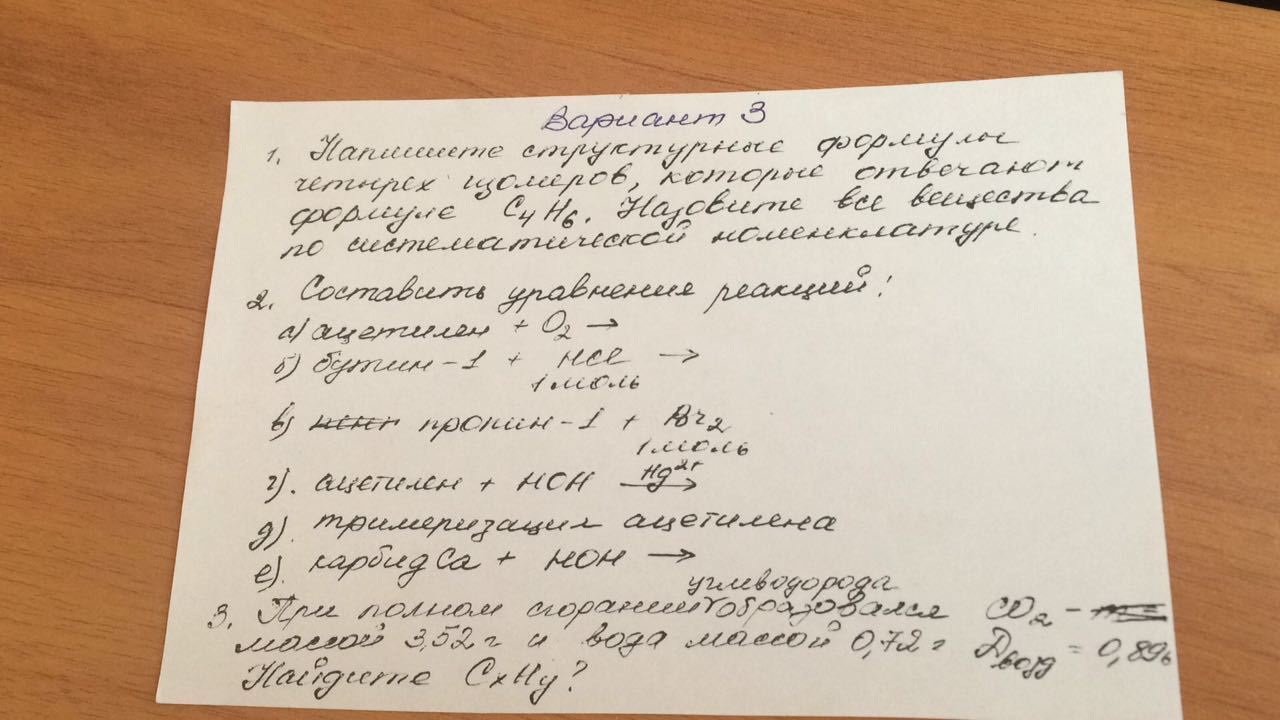 Вариант 3
1. Напишите структурные формулы
четырех изомеров, которые отвечают
формуле C₄H₆. Назовите все вещества
по систематической номенклатуре.
2. Составить уравнения реакций:
а) ацетилен + O₂ →
б) бутин-1 + HCl →
1 моль
в) пропин-1 + Br₂
1 моль
г). ацетилен + HOH Hg²⁺ →
д). тримеризация ацетилена
е). карбид Ca + HOH →
углеводорода
3. При полном сгорании образовался CO₂ -
массой 3,52 г и вода массой 0,72 г Dвозд = 0,896
Найдите CxHy?